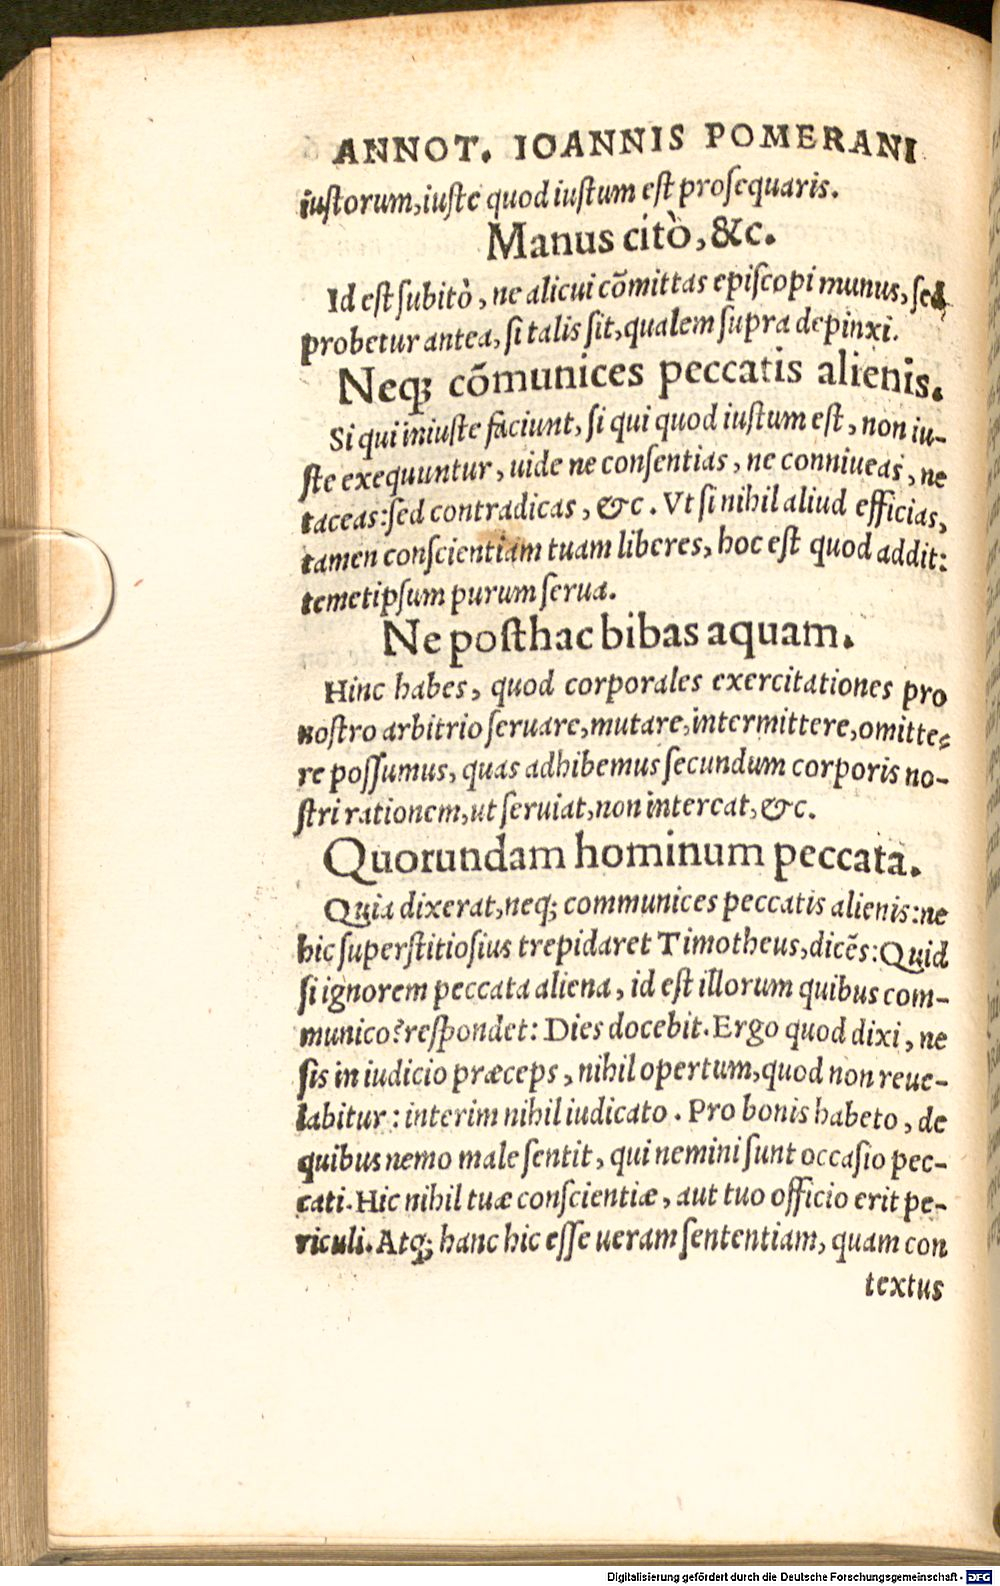 ANNOT. IOANNIS POMERANI
iustorum, iuste quod iustum est prosequaris.
Manus citò, &c.
Id est subitò, ne alicui cõmittas episcopi munus, sed
probetur antea, si talis sit, qualem supra depinxi.
Neq; cõmunices peccatis alienis.
Si qui iniuste faciunt, si qui quod iustum est, non iu-
ste exequuntur, uide ne consentias, ne conniueas, ne
taceas: sed contradicas, &c. Vt si nihil aliud efficias,
tamen conscientiam tuam liberes, hoc est quod addit:
temetipsum purum serua.
Ne posthac bibas aquam.
Hinc habes, quod corporales exercitationes pro
nostro arbitrio seruare, mutare, intermittere, omitte-
re possumus, quas adhibemus secundum corporis no-
stri rationem, ut seruiat, non intereat, &c.
Quorundam hominum peccata.
Quia dixerat, neq; communices peccatis alienis: ne
hic superstitiosius trepidaret Timotheus, dicẽs: Quid
si ignorem peccata aliena, id est illorum quibus com-
munico? respondet: Dies docebit. Ergo quod dixi, ne
sis in iudicio præceps, nihil opertum, quod non reue-
labitur: interim nihil iudicato. Pro bonis habeto, de
quibus nemo male sentit, qui nemini sunt occasio pec-
cati. Hic nihil tuæ conscientiæ, aut tuo officio erit pe-
riculi. Atq; hanc hic esse ueram sententiam, quam con
textus
Digitalisierung gefördert durch die Deutsche Forschungsgemeinschaft - DFG